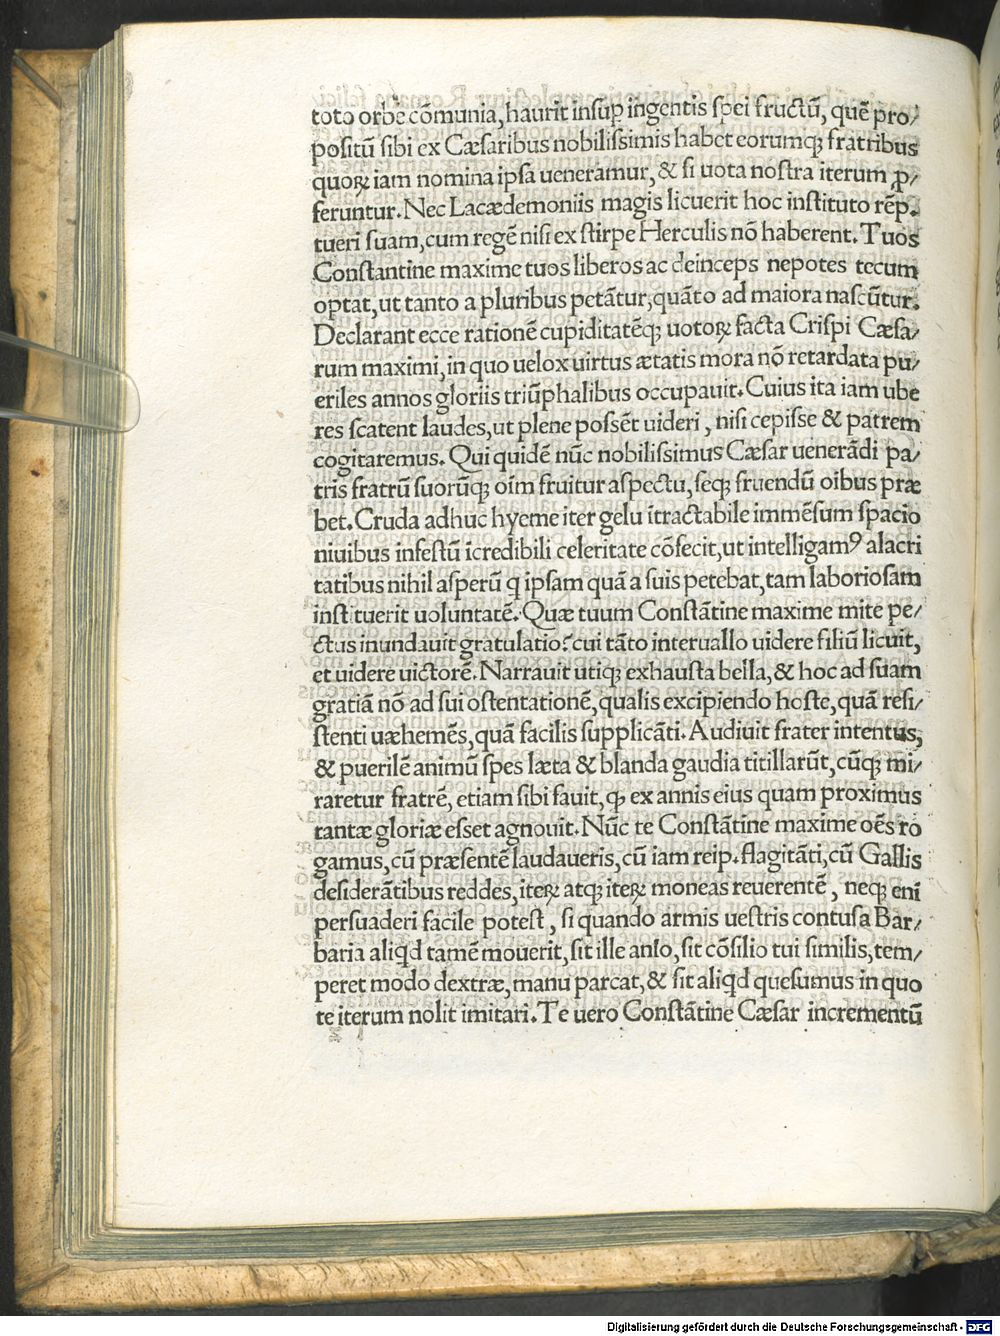 toto orbe cõmunia, haurit insup ingentis spei fructũ, quẽ pro/
positũ sibi ex Cæsaribus nobilissimis habet eorumq; fratribus
quoꝝ iam nomina ipsa ueneramur, & si uota nostra iterum ꝓ/
feruntur. Nec Lacædemoniis magis licuerit hoc instituto rẽp.
tueri suam, cum regẽ nisi ex stirpe Herculis nõ haberent. Tuos
Constantine maxime tuos liberos ac deinceps nepotes tecum
optat, ut tanto a pluribus petãtur, quãto ad maiora nascũtur.
Declarant ecce rationẽ cupiditatẽq; uotoꝝ facta Crispi Cæsa/
rum maximi, in quo uelox uirtus ætatis mora nõ retardata pu/
eriles annos gloriis triũphalibus occupauit. Cuius ita iam ube
res scatent laudes, ut plene possẽt uideri, nisi cepisse & patrem
cogitaremus. Qui quidẽ nũc nobilissimus Cæsar uenerãdi pa/
tris fratrũ suorũq; oĩm fruitur aspectu, seq; fruendũ oibus præ
bet. Cruda adhuc hyeme iter gelu ĩtractabile immẽsum spacio
niuibus infestũ ĩcredibili celeritate cõfecit, ut intelligamꝰ alacri
tatibus nihil asperũ q ipsam quã a suis petebat, tam laboriosam
instituerit uoluntatẽ. Quæ tuum Constãtine maxime mite pe/
ctus inundauit gratulatio? cui tãto interuallo uidere filiũ licuit,
et uidere uictorẽ. Narrauit utiq; exhausta bella, & hoc ad suam
gratiã nõ ad sui ostentationẽ, qualis excipiendo hoste, quã resi/
stenti uæhemẽs, quã facilis supplicãti. Audiuit frater intentus,
& puerilẽ animũ spes læta & blanda gaudia titillarũt, cũq; mi/
raretur fratrẽ, etiam sibi fauit, ꝙ ex annis eius quam proximus
tantæ gloriæ esset agnouit. Nũc te Constãtine maxime oẽs ro
gamus, cũ præsentẽ laudaueris, cũ iam reip. flagitãti, cũ Gallis
desiderãtibus reddes, iteꝝ atq; iteꝝ moneas reuerentẽ, neq; enĩ
persuaderi facile potest, si quando armis uestris contusa Bar/
baria aliqd tamẽ mouerit, sit ille anlo, sit cõsilio tui similis, tem/
peret modo dextræ, manu parcat, & sit aliqd quesumus in quo
te iterum nolit imitari. Te uero Constãtine Cæsar incrementũ
Digitalisierung gefördert durch die Deutsche Forschungsgemeinschaft - DFG